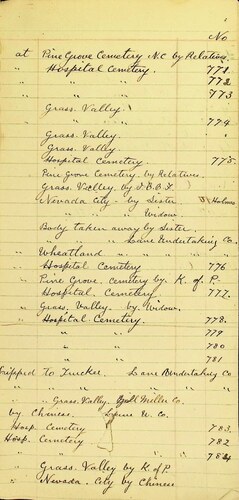 No
at Pine Grove Cemetery N.C by Relatives
" Hospital Cemetery. 771
" " " 772
" " " 773
" Grass Valley
" " " 774
" Grass Valley.
" Grass Valley
" Hospital Cemetery 775
" Pine Grove Cemetery by Relatives
" Grass Valley by I.O.O.F.
" Nevada City - by Sister Holmes
" " " " Widow
" Body taken away by Sister.
" " " " Lane Undertaking Co.
" Wheatland " " "
" Hospital Cemetery 776
" Pine Grove Cemetery by K. of P.
" Hospital Cemetery 777.
" Grass Valley by Widow.
" Hospital Cemetery. 778.
" " " 779
" " " 780
" " " 781
Shipped To Truckee. Lane Undertaking Co
" " " "
" Grass Valley Miller Co.
by Chinese. U. Co.
Hosp. Cemetery 783.
Hosp. Cemetery 782
" " 784
" Grass Valley by K of P
" Nevada City by Chinese